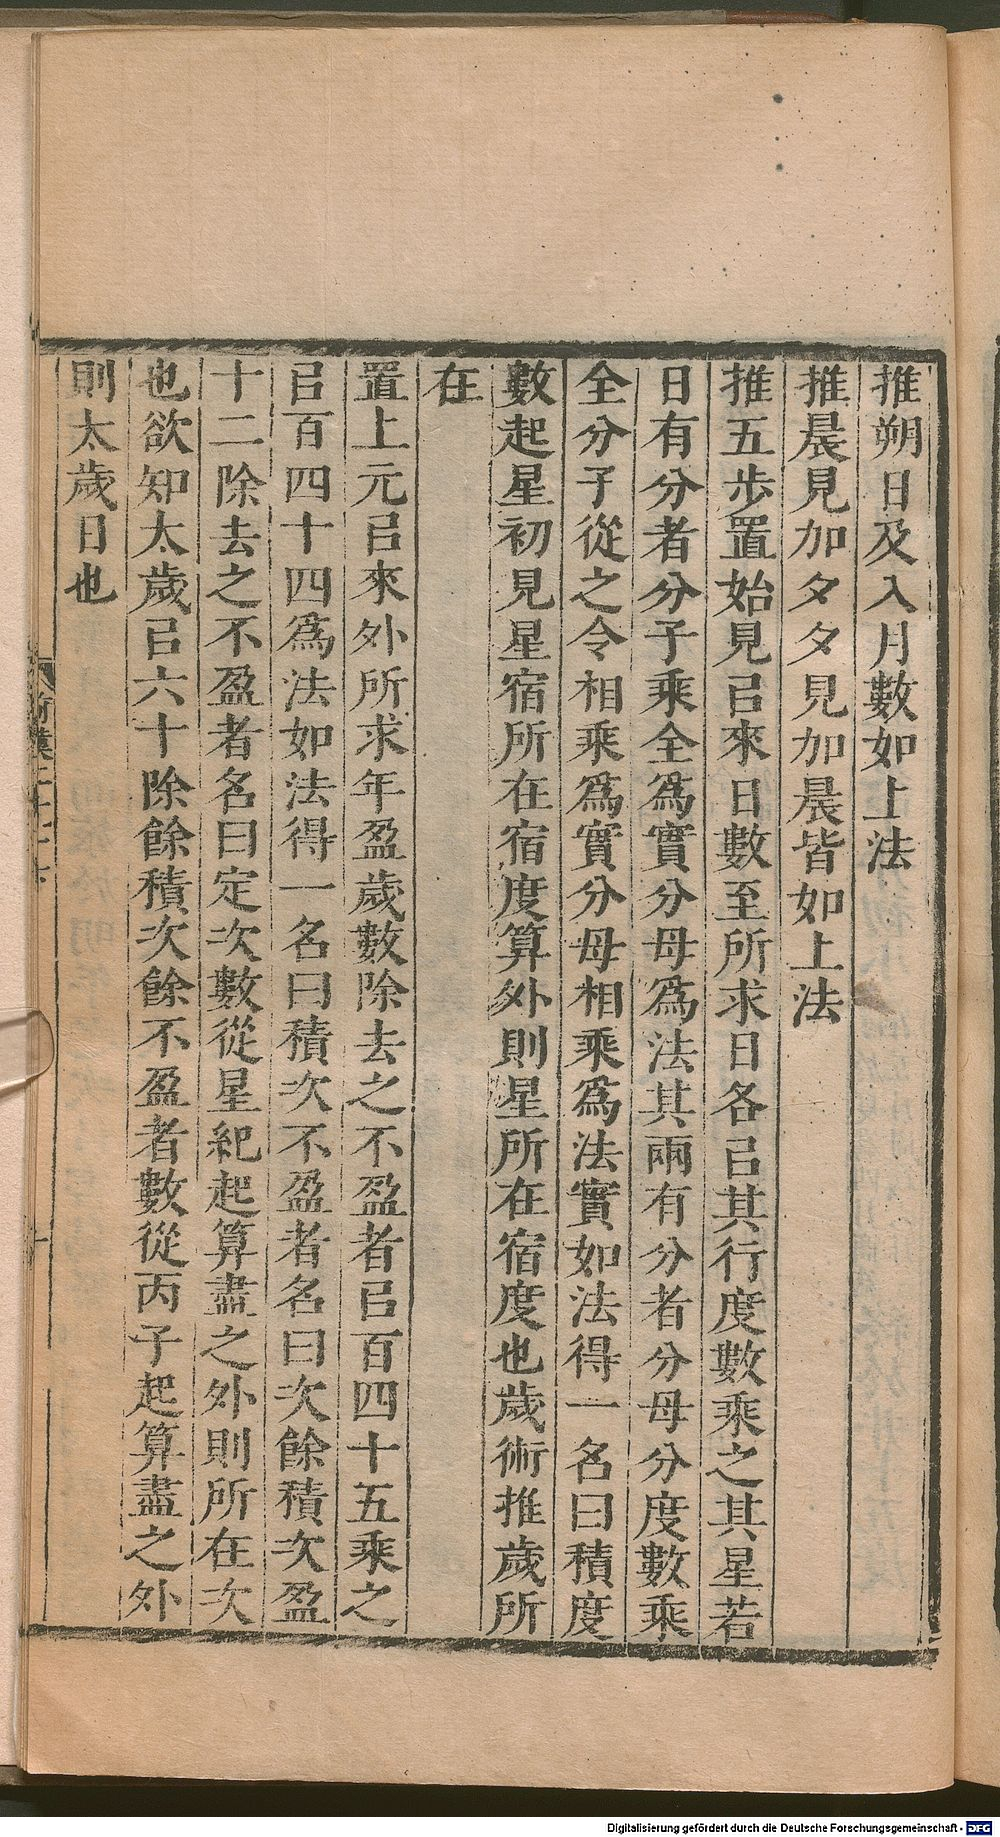 推朔日及入月數如上法
推晨見加夕夕見加晨皆如上法
推五步置始見㠯來日數至所求日各㠯其行度數乘之其星若
日有分者分子乘全爲實分母爲法其兩有分者分母分度數乘
全分子從之令相乘爲實分母相乘爲法實如法得一名曰積度
數起星初見星宿所在宿度算外則星所在宿度也歲術推歲所
在
置上元㠯來外所求年盈歲數除去之不盈者㠯百四十五乘之
㠯百四十四爲法如法得一名曰積次不盈者名曰次餘積次盈
十二除去之不盈者名曰定次數從星紀起算盡之外則所在次
也欲知太歲㠯六十除餘積次餘不盈者數從丙子起算盡之外
則太歲日也
Digitalisierung gefördert durch die Deutsche Forschungsgemeinschaft - DFG